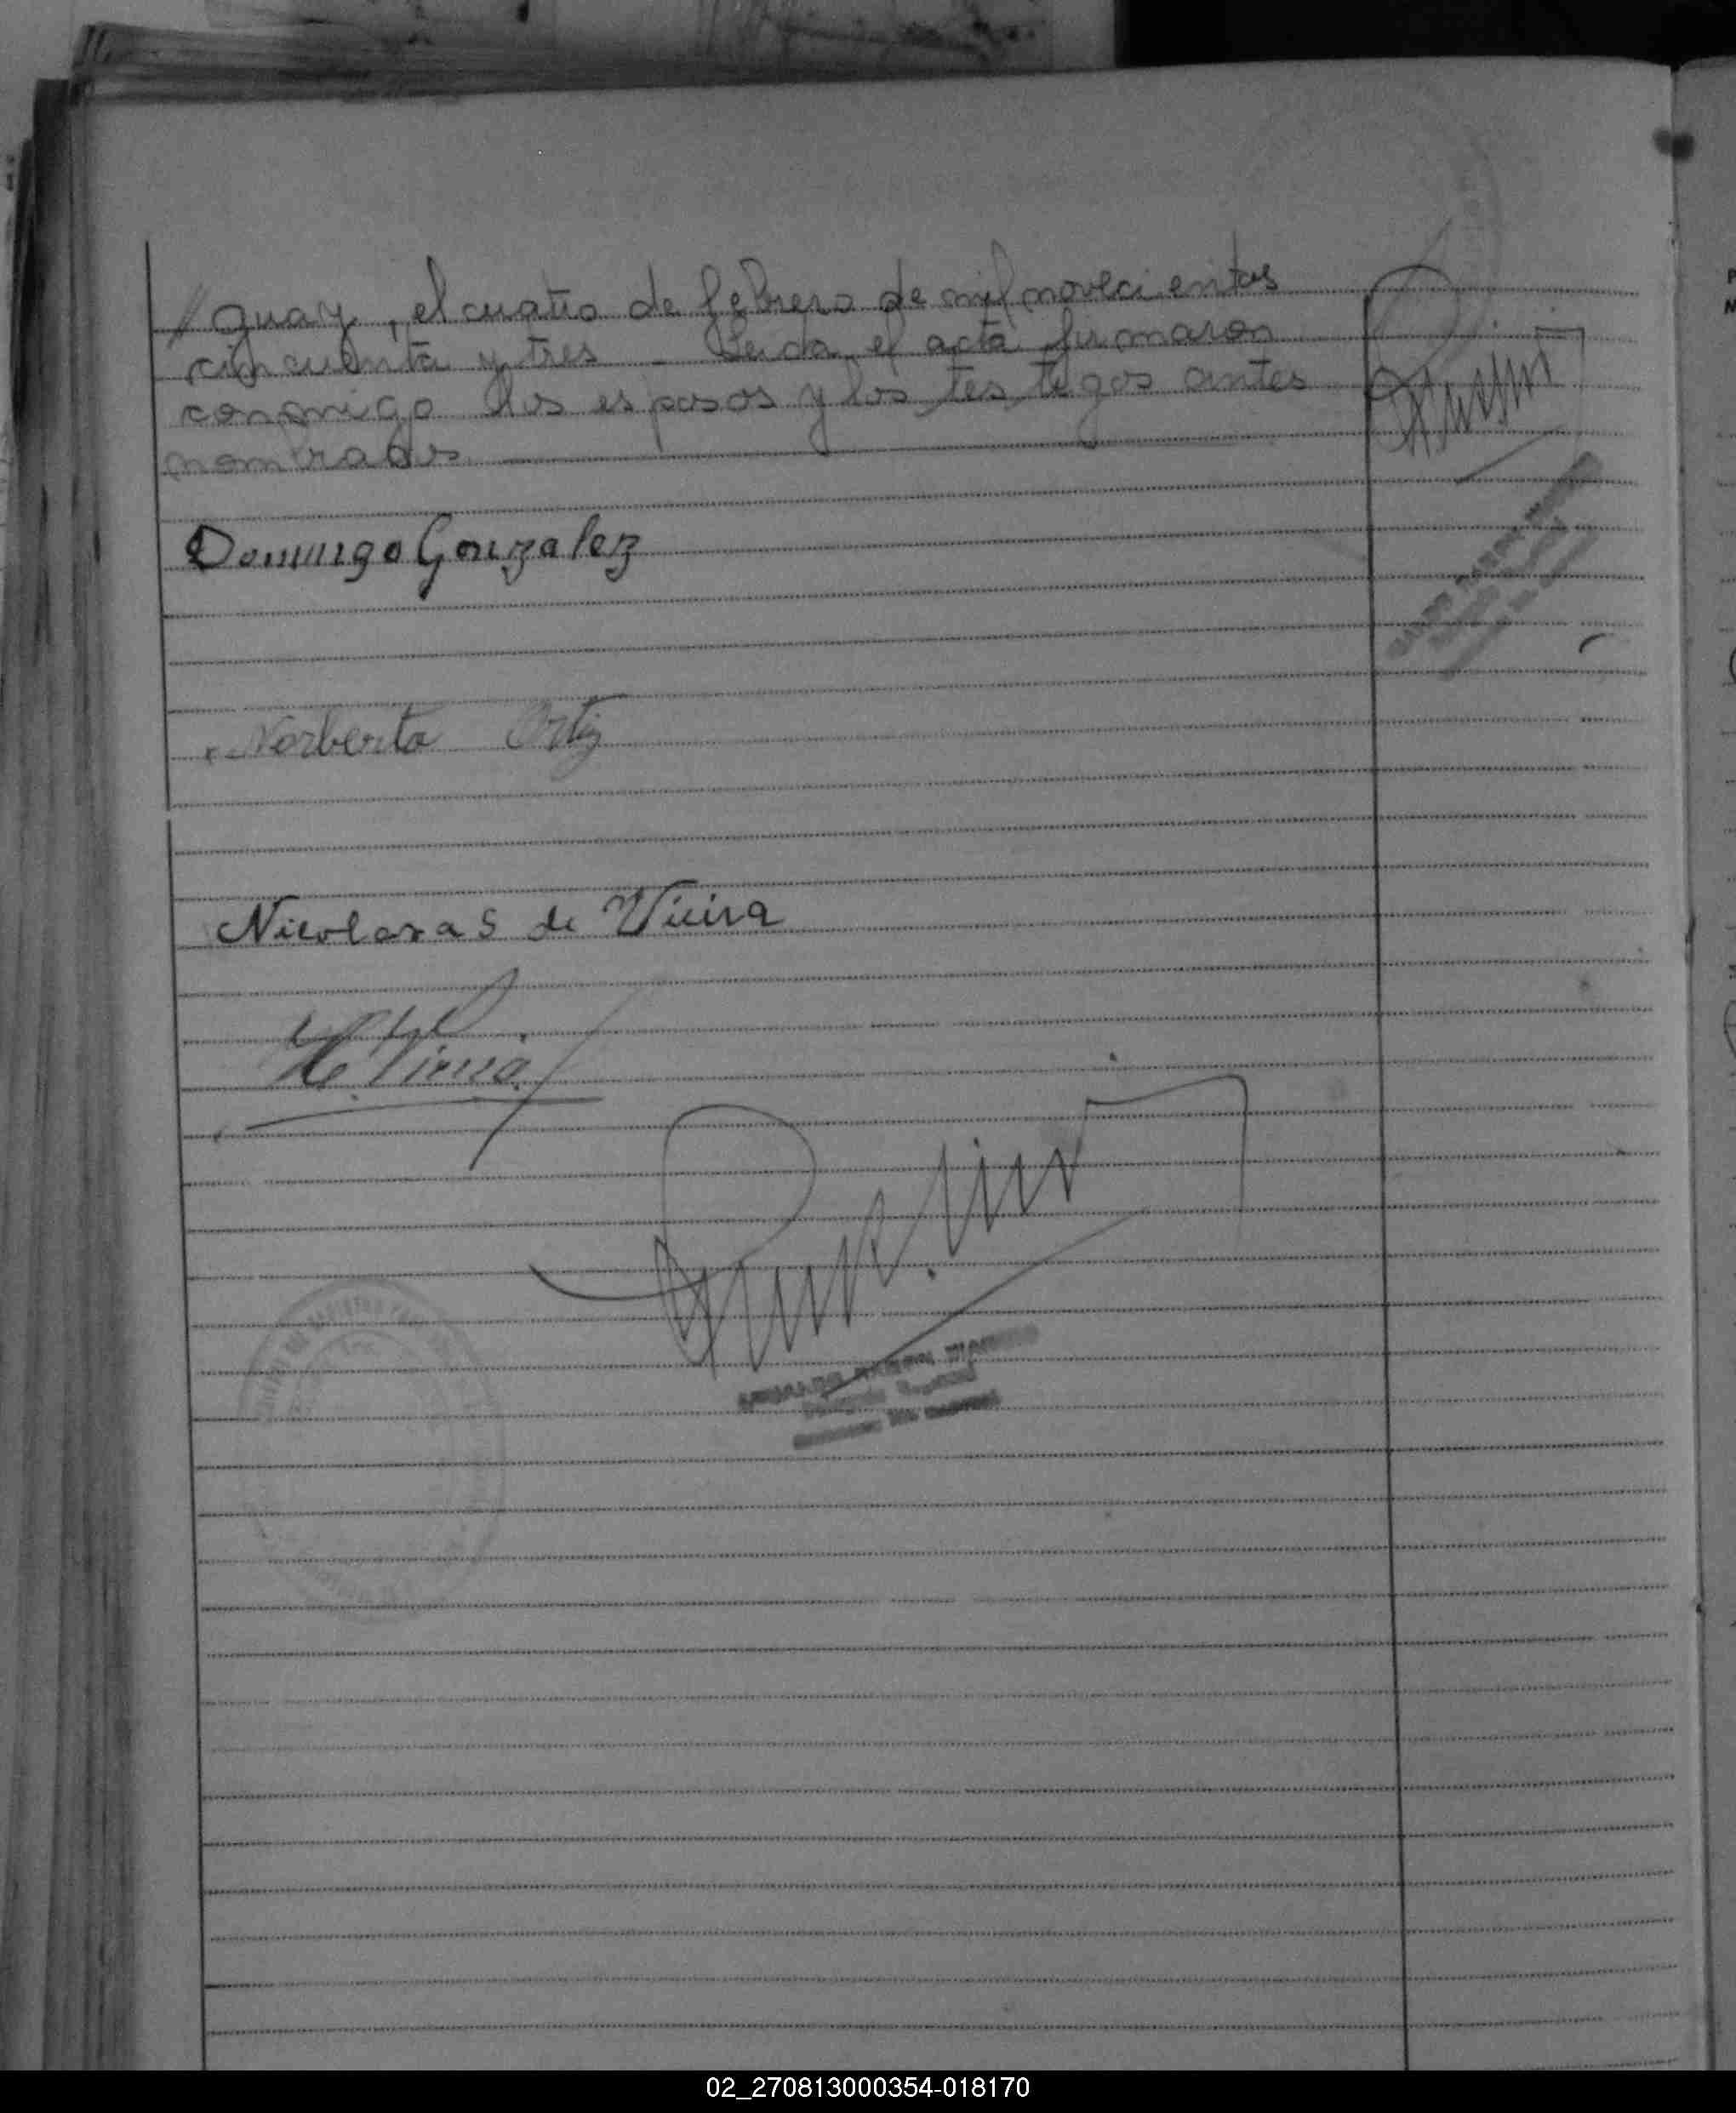 // guay, el cuatro de febrero de mil novecientos
cincuenta y tres - Leida el acta firmaron
conmigo los esposos y los testigos antes
nombrados
Domingo Gonzalez
Norberta Ortiz
Nicolasa S de Vieira
Vieira
02_270813000354-018170